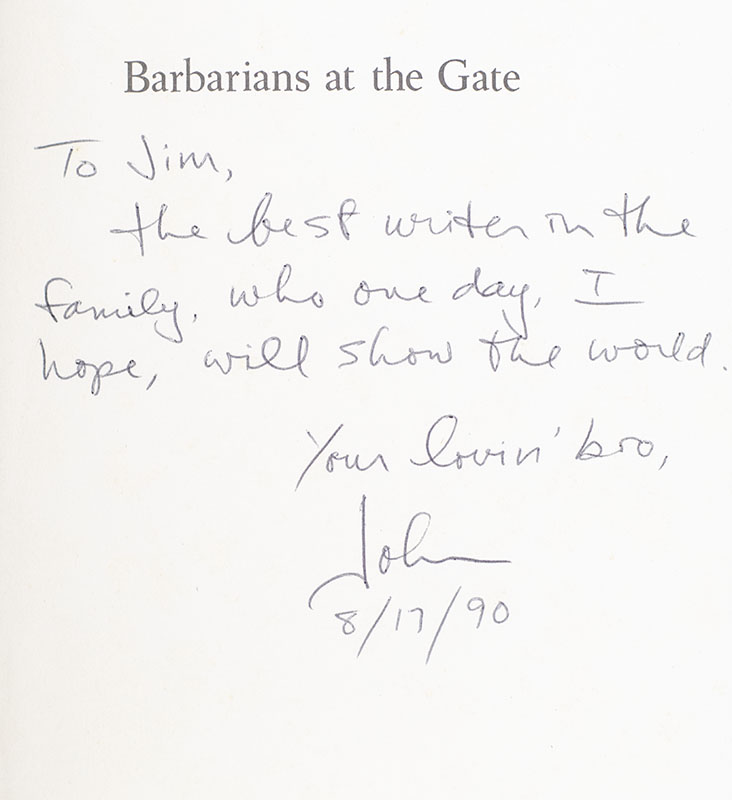 Barbarians at the Gate
To Jim,
the best writer in the
family, who one day, I
hope, will show the world.
Your lovin' bro,
John
8/17/90